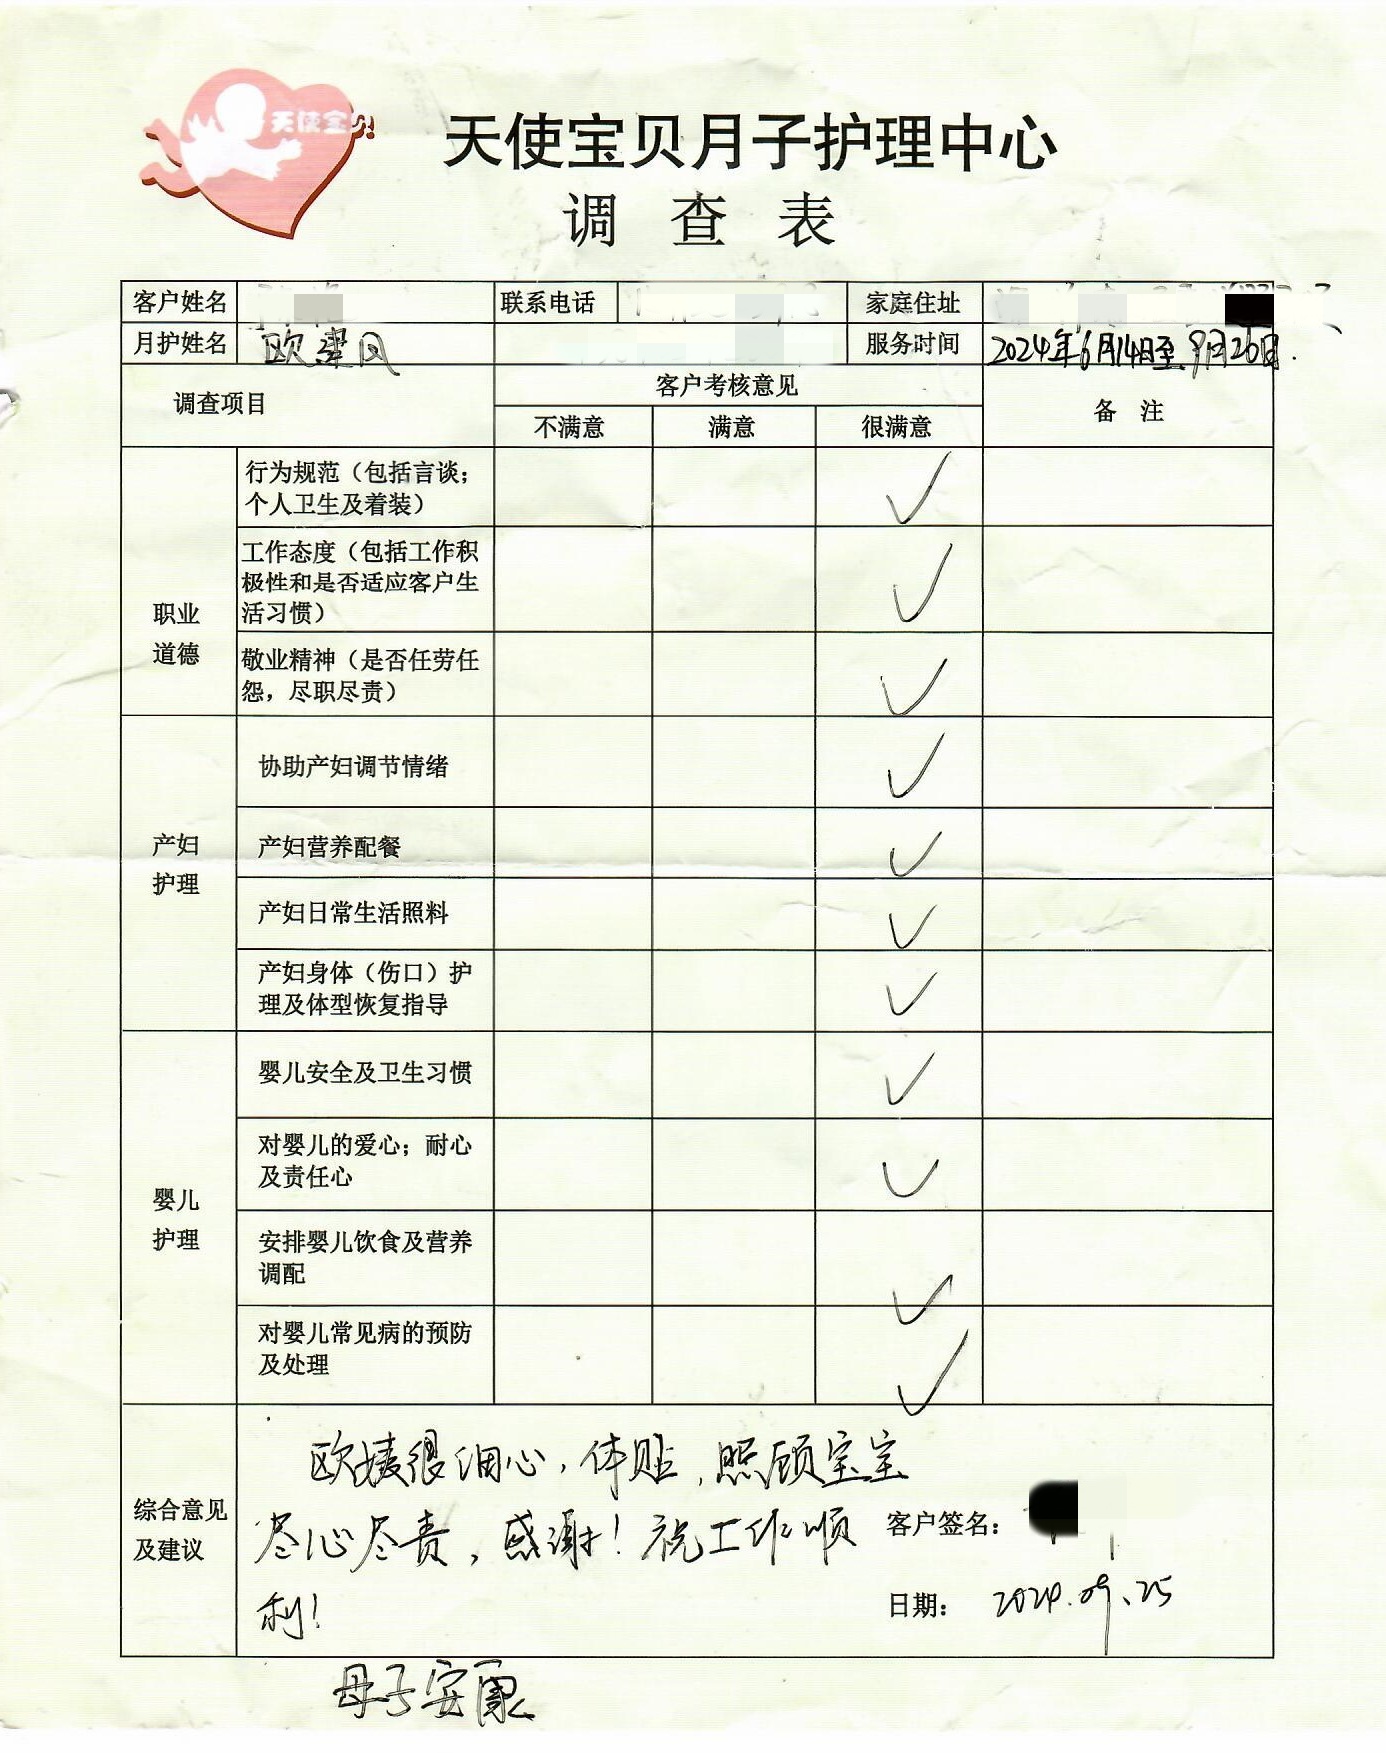 天使宝贝
天使宝贝月子护理中心
调 查 表
客户姓名 联系电话 家庭住址
月护姓名 欧翠凤 服务时间 2024年6月14日至9月26日.
调查项目 客户考核意见 备 注
不满意 满意 很满意
职业
道德
行为规范（包括言谈；
个人卫生及着装）
工作态度（包括工作积
极性和是否适应客户生
活习惯）
敬业精神（是否任劳任
怨，尽职尽责）
产妇
护理
协助产妇调节情绪
产妇营养配餐
产妇日常生活照料
产妇身体（伤口）护
理及体型恢复指导
婴儿
护理
婴儿安全及卫生习惯
对婴儿的爱心；耐心
及责任心
安排婴儿饮食及营养
调配
对婴儿常见病的预防
及处理
综合意见
及建议
欧姨很细心，体贴，照顾宝宝
尽心尽责，感谢！祝工作顺
利！
客户签名：
日期： 2024.09.25
母子安康